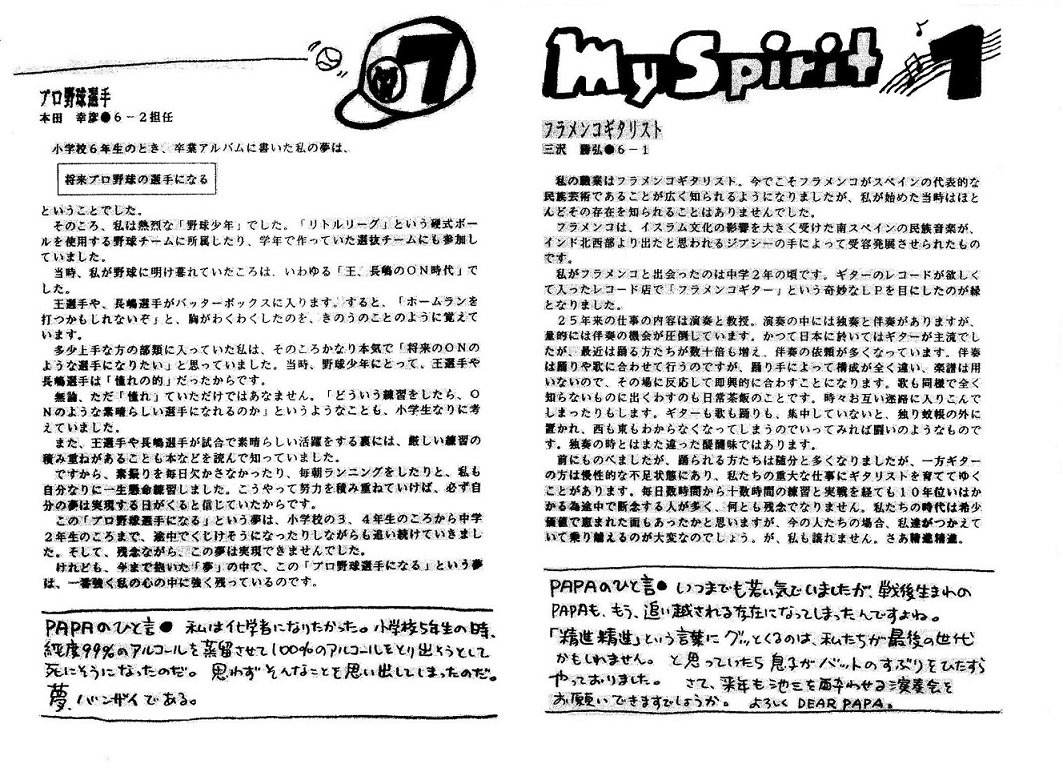 7
プロ野球選手
本田 幸彦●6-2担任
小学校6年生のとき、卒業アルバムに書いた私の夢は、
将来プロ野球の選手になる
ということでした。
そのころ、私は熱烈な「野球少年」でした。「リトルリーグ」という硬式ボー
ルを使用する野球チームに所属したり、学年で作っていた選抜チームにも参加し
ていました。
当時、私が野球に明け暮れていたころは、いわゆる「王、長嶋のON時代」で
した。
王選手や、長嶋選手がバッターボックスに入ります。すると、「ホームランを
打つかもしれないぞ」と、胸がわくわくしたのを、きのうのことのように覚えて
います。
多少上手な方の部類に入っていた私は、そのころかなり本気で「将来のONの
ような選手になりたい」と思っていました。当時、野球少年にとって、王選手や
長嶋選手は「憧れの的」だったからです。
無論、ただ「憧れ」ていただけではありません。「どういう練習をしたら、O
Nのような素晴らしい選手になれるのか」というようなことも、小学生なりに考
えていました。
また、王選手や長嶋選手が試合で素晴らしい活躍をする裏には、厳しい練習の
積み重ねがあることも本などを読んで知っていました。
ですから、素振りを毎日欠かさなかったり、毎朝ランニングをしたりと、私も
自分なりに一生懸命練習しました。こうやって努力を積み重ねていけば、必ず自
分の夢は実現する日がくると信じていたからです。
この「プロ野球選手になる」という夢は、小学校の3、4年生のころから中学
2年生のころまで、途中でくじけそうになったりしながらも追い続けていきまし
た。そして、残念ながら、この夢は実現できませんでした。
けれども、今まで抱いた「夢」の中で、この「プロ野球選手になる」という夢
は、一番強く私の心の中に強く残っているのです。
PAPAのひと言● 私は化学者になりたかった。小学校5年生の時、
純度99%のアルコールを蒸留させて100%のアルコールをとり出そうとして
死にそうになったのだ。 思わずそんなことを思い出してしまったのだ。
夢、バンザイである。
My Spirit 1
フラメンコギタリスト
三沢 勝弘●6-1
私の職業はフラメンコギタリスト。今でこそフラメンコがスペインの代表的な
民族芸術であることが広く知られるようになりましたが、私が始めた当時はほと
んどその存在を知られることはありませんでした。
フラメンコは、イスラム文化の影響を大きく受けた南スペインの民族音楽が、
インド北西部より出たと思われるジプシーの手によって受容発展させられたもの
です。
私がフラメンコと出会ったのは中学2年の頃です。ギターのレコードが欲しく
て入ったレコード店で「フラメンコギター」という奇妙なLPを目にしたのが縁
となりました。
25年来の仕事の内容は演奏と教授。演奏の中には独奏と伴奏がありますが、
量的には伴奏の機会が圧倒しています。かつて日本に於いてはギターが主流でし
たが、最近は踊る方たちが数十倍も増え、伴奏の依頼が多くなっています。伴奏
は踊りや歌に合わせて行うのですが、踊り手によって構成が全く違い、楽譜は用
いないので、その場に反応して即興的に合わすことになります。歌も同様で全く
知らないものに出くわすのも日常茶飯のことです。時々お互い迷路に入りこんで
しまったりもします。ギターも歌も踊りも、集中していないと、独り蚊帳の外に
置かれ、西も東もわからなくなってしまうのでいってみれば闘いのようなもので
す。独奏の時とはまた違った醍醐味ではあります。
前にものべましたが、踊られる方たちは随分と多くなりましたが、一方ギター
の方は慢性的な不足状態にあり、私たちの重大な仕事にギタリストを育ててゆく
ことがあります。毎日数時間から十数時間の練習と実戦を経ても10年位いはか
かる為途中で断念する人が多く、何とも残念でなりません。私たちの時代は希少
価値で恵まれた面もあったかと思いますが、今の人たちの場合、私達がつかえて
いて乗り越えるのが大変なのでしょう。が、私も譲れません。さあ精進精進。
PAPAのひと言● いつまでも若い気でいましたが、戦後生まれの
PAPAも、もう、追い越される存在になってしまったんですよね。
「精進精進」という言葉にグッとくるのは、私たちが最後の世代
かもしれません。 と思っていたら息子がバットのすぶりをひたすら
やっておりました。 さて、来年も池三を酔わせる演奏会を
お願いできますでしょうか。 よろしく DEAR PAPA。